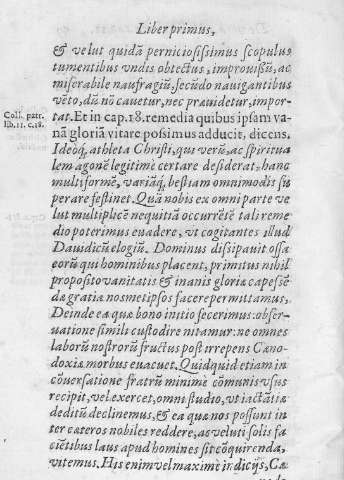 Liber primus,
& velut quidã perniciosissimus scopulus
tumentibus vndis obtectus, improvisũ, ac
miserabile naufragiũ, secũdo navigantibus
vẽto, dũ nõ cauetur, nec præuidetur, impor-
tat. Et in cap. 18. remedia quibus ipsam va-
Coll. patr.
lib. 11. c. 18.
nã gloriã vitare possimus adducit, dicens.
Ideoq́; athleta Christi, qui verũ, ac spiritua
lem agonẽ legitime certare desiderat, hanc
multiformẽ, variãq́; bestiam omnimodis su
perare festinet. Quã nobis ex omni parte ve
lut multiplicẽ nequitiã occurrẽtẽ tali reme
dio poterimus euadere, vt cogitantes illud
Dauidicũ elogiũ. Dominus dissipauit ossa
eorũ qui hominibus placent, primitus nihil
proposito vanitatis & inanis gloriæ capessẽ
dæ gratia nosmetipsos facere permittamus,
Deinde ea quæ bono initio fecerimus: obser-
uatione simili custodire nitamur: ne omnes
laborũ nostrorũ fructus post irrepens Cæno-
doxiæ morbus euacuet. Quidquid etiam in
cõuersatione fratrũ minime cõmunis vsus
recipit, vel exercet, omni studio, vt iactãtiæ
deditũ declinemus, & ea quæ nos possunt in
ter cæteros nobiles reddere, ac veluti solis fa
ciẽtibus laus apud homines sit cõquirenda,
vitemus. His enim vel maxime indicijs, Cæ